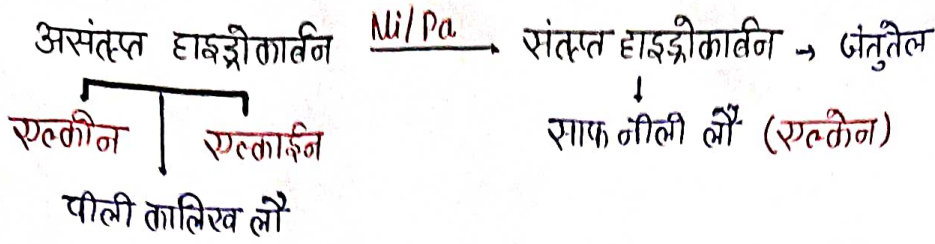 असंतृप्त हाइड्रोकार्बन Ni/Pa → संतृप्त हाइड्रोकार्बन → जंतुतेल
एल्कीन एल्काईन साफ नीली लौ (एल्केन)
पीली कालिख लौ